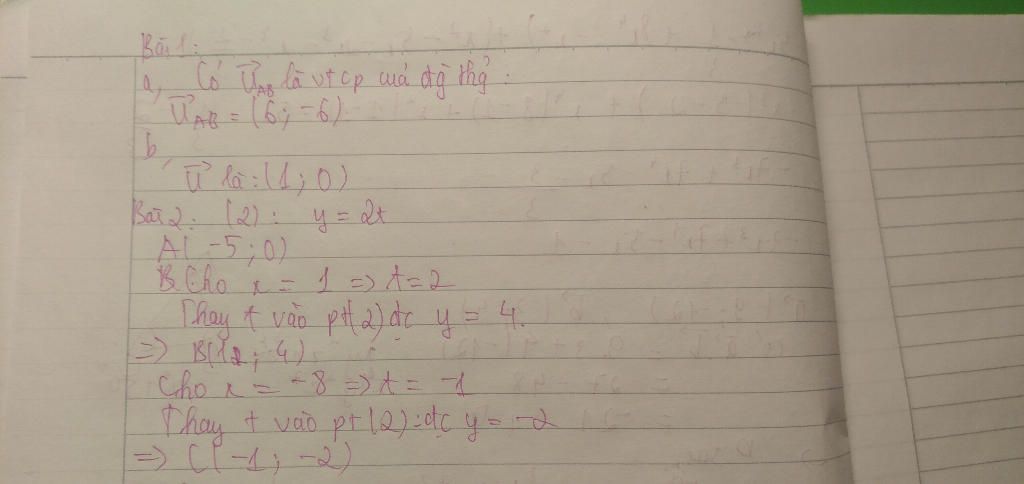 Bài 1:
a, Có U⃗AB là vtcp của đg thg :
U⃗AB = (6; -6)
b,
U⃗ là : (1; 0)
Bài 2: (2): y = 2t
A( -5; 0)
B. Cho x = 1 => t = 2
Thay t vào pt(2) đc y = 4.
=> B(1; 4)
Cho x = -8 => t = -1
Thay t vào pt (2) : đc y = -2
=> C(-1; -2)